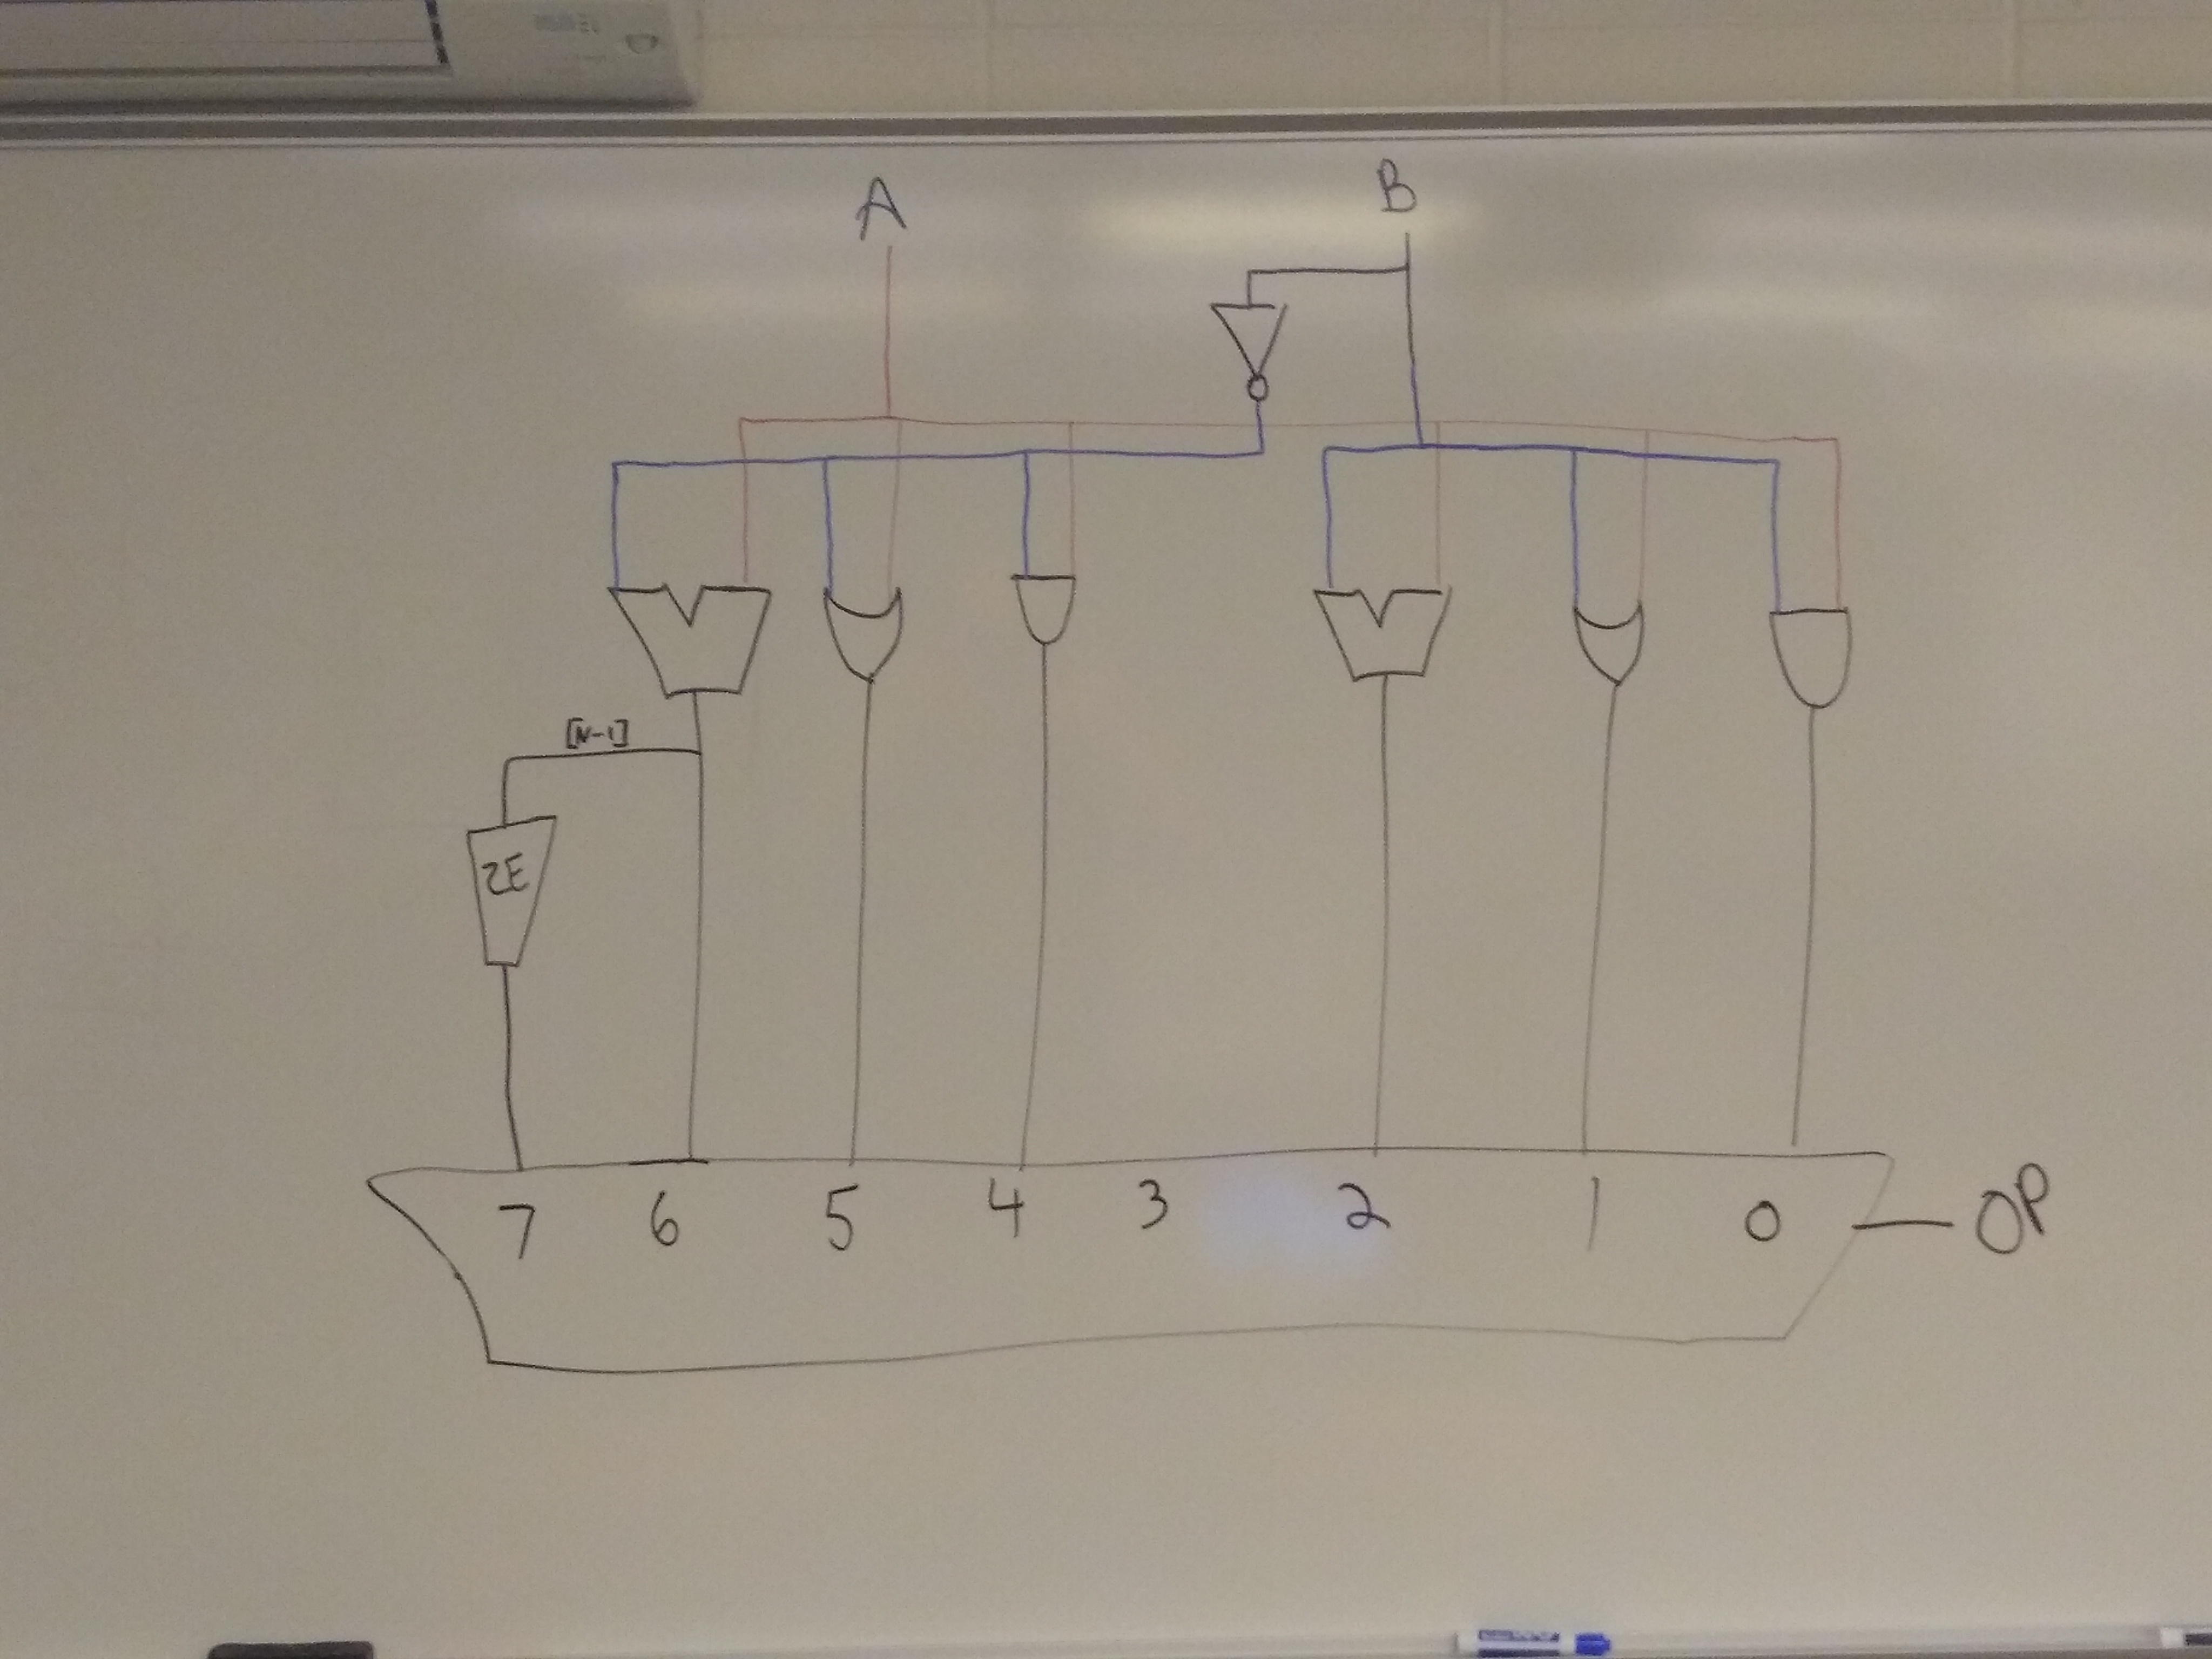 A
B
[N-1]
ZE
7 6 5 4 3 2 1 0
OP